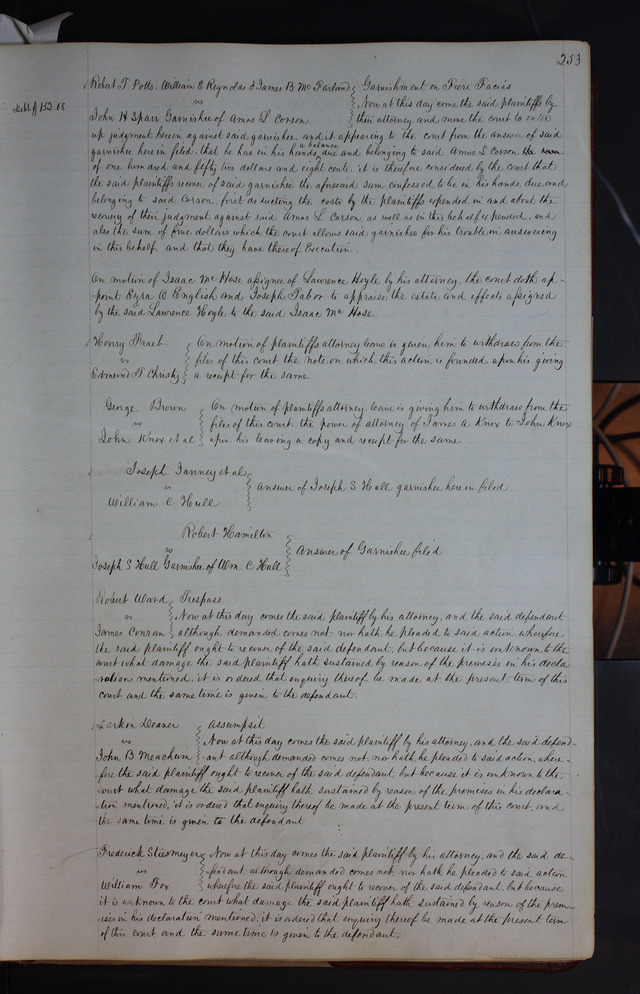 253
Debt $152.08
Robert T Potts, William C Reynolds & James B McParland Garnishment on Fieri Facias
vs Now at this day come the said plaintiffs by
John H Sparr Garnishee of Amos L Corson their attorney, and move the court to enter
up judgment herein against said garnishee, and it appearing to the court from the answer of said
garnishee herein filed, that he has in his hands, a balance due and belonging to said Amos L Corson
of one hundred and fifty two dollars and eight cents, it is therefore considered by the court that
the said plaintiffs recover of said garnishee the aforesaid sum confessed to be in his hands, due and
belonging to said Corson, first deducting the costs by the plaintiffs expended in and about the
recovery of their judgment against said Amos L Corson, as well as in this behalf expended, and
also the sum of five dollars which the court allows said garnishee for his trouble in answering
in this behalf, and that they have thereof Execution.
On motion of Isaac McHose assignee of Lawrence Hoyle by his attorney, the court doth ap-
-point Ezra O English and Joseph Tabor to appraise the estate and effects assigned
by the said Lawrence Hoyle to the said Isaac McHose
Henry Fraeb On motion of plaintiffs attorney leave is given him to withdraw from the
vs files of this court the note on which this action is founded upon his giving
Edmund T Christy a receipt for the same
George Brown On motion of plaintiffs attorney, leave is giving him to withdraw from the
vs files of this court, the power of attorney of James A Knox to John Knox
John Knox et al upon his leaving a copy and receipt for the same
Joseph Tanney et al
vs Answer of Joseph S Hull garnishee herein filed
William C Hull
Robert Hamilton
vs Answer of Garnishee filed
Joseph S Hull Garnishee of Wm C Hull
Robert Ward Trespass
vs Now at this day comes the said plaintiff by his attorney, and the said defendant
James Conran although demanded comes not nor hath he pleaded to said action, wherefore
the said plaintiff ought to recover of the said defendant, but because it is unknown to the
court what damage the said plaintiff hath sustained by reason of the premises in his decla
ration mentioned, it is ordered that enquiry thereof be made at the present term of this
court and the same time is given to the defendant.
Larkin Deaver Assumpsit
vs Now at this day comes the said plaintiff by his attorney, and the said defend-
John B Meachum ant although demanded comes not, nor hath he pleaded to said action, where-
fore the said plaintiff ought to recover of the said defendant but because it is unknown to the
court what damage the said plaintiff hath sustained by reason of the premises in his declara-
tion mentioned, it is ordered that enquiry thereof be made at the present term of this court, and
the same time is given to the defendant
Frederick Stiesmeyer Now at this day comes the said plaintiff by his attorney, and the said de-
vs fendant although demanded comes not nor hath he pleaded to said action
William Fox wherefore the said plaintiff ought to recover of the said defendant, but because
it is unknown to the court what damage the said plaintiff hath sustained by reason of the prem-
ises in his declaration mentioned, it is ordered that enquiry thereof be made at the present term
of this court and the same time is given to the defendant.